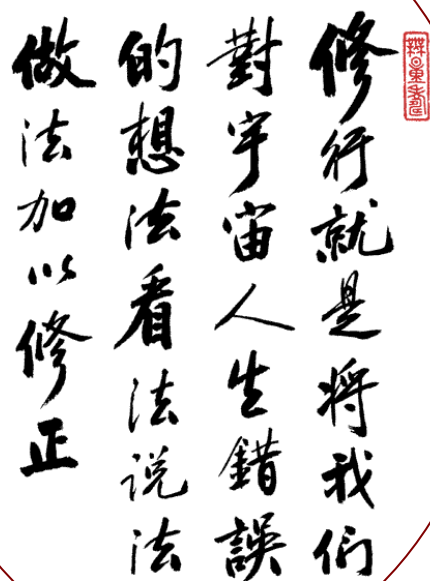 修行就是將我们
對宇宙人生錯誤
的想法看法説法
做法加以修正
無量壽